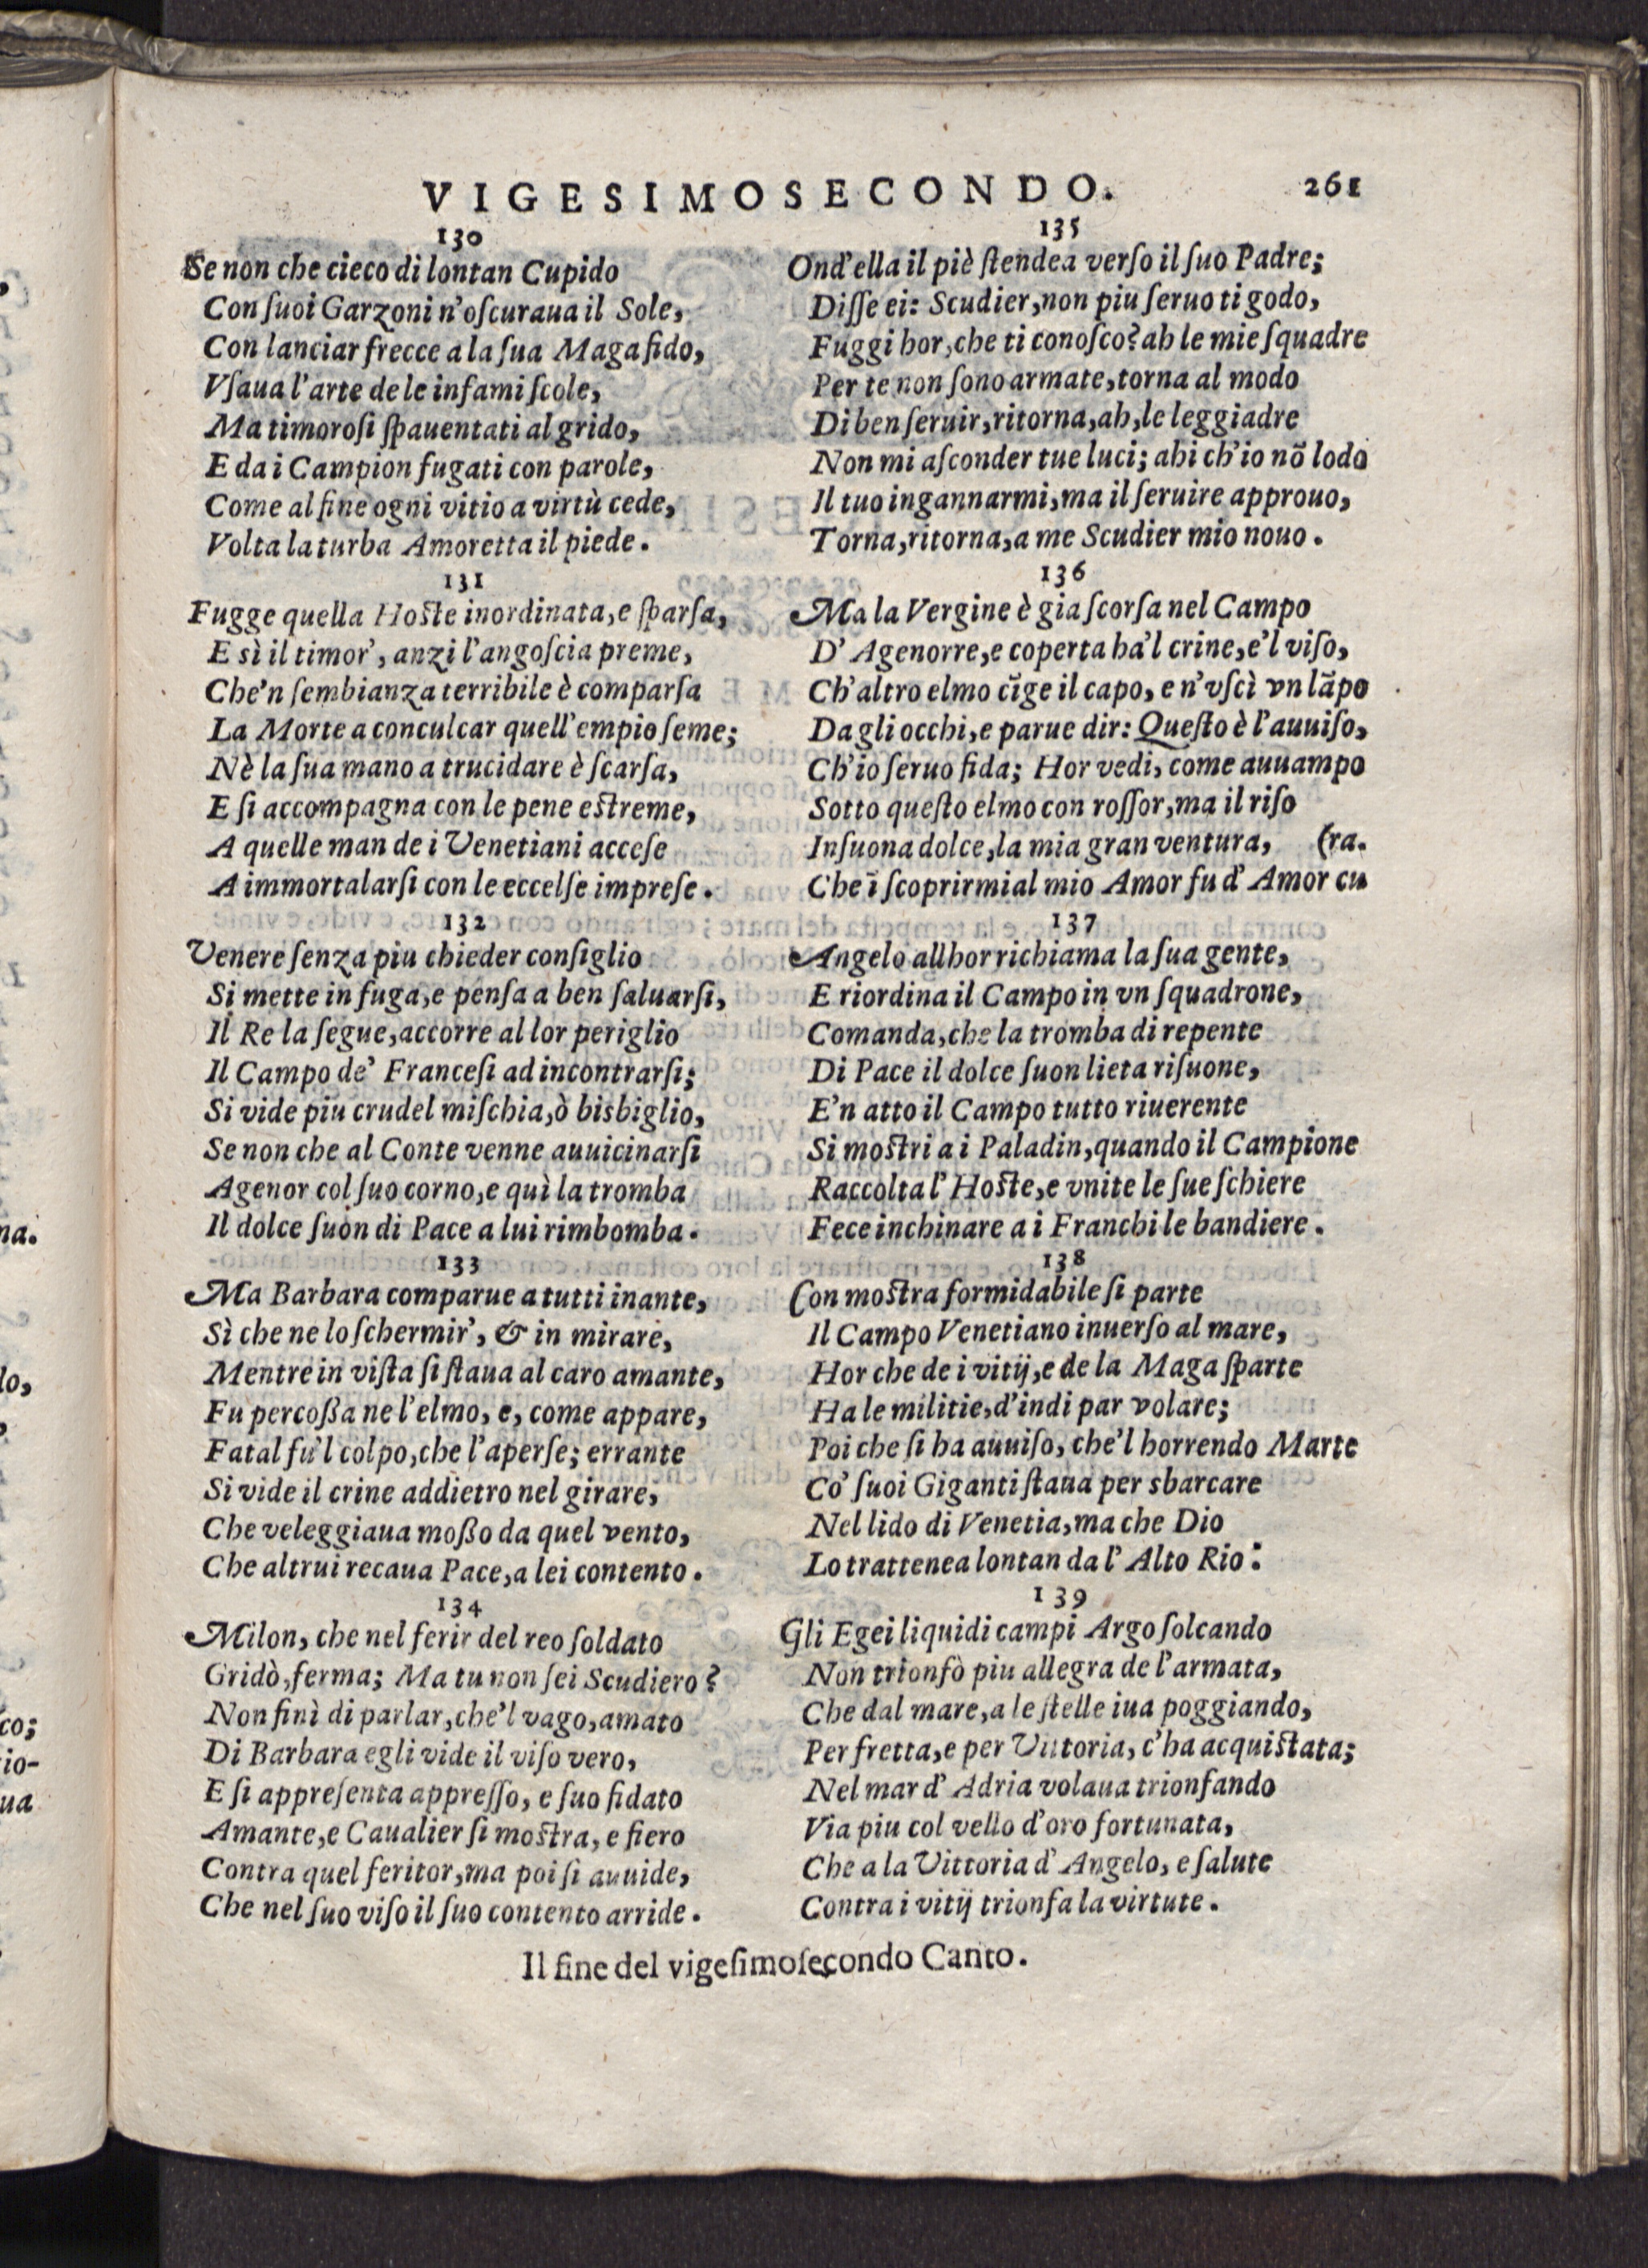 VIGESIMOSECONDO. 261
130
Se non che cieco di lontan Cupido
Con ſuoi Garzoni n'oſcuraua il Sole,
Con lanciar frecce a la ſua Maga fido,
Vſaua l'arte de le infami ſcole,
Ma timoroſi ſpauentati al grido,
E da i Campion fugati con parole,
Come al fine ogni vitio a virtù cede,
Volta la turba Amoretta il piede.
131
Fugge quella Hoſte inordinata, e ſparſa,
E sì il timor', anzi l'angoſcia preme,
Che'n ſembianza terribile è comparſa
La Morte a conculcar quell'empio ſeme;
Nè la ſua mano a trucidare è ſcarſa,
E ſi accompagna con le pene eſtreme,
A quelle man de i Venetiani acceſe
A immortalarſi con le eccelſe impreſe.
132
Venere ſenza piu chieder conſiglio
Si mette in fuga, e penſa a ben ſaluarſi,
Il Re la ſegue, accorre al lor periglio
Il Campo de' Franceſi ad incontrarſi;
Si vide piu crudel miſchia, ò bisbiglio,
Se non che al Conte venne auuicinarſi
Agenor col ſuo corno, e quì la tromba
Il dolce ſuon di Pace a lui rimbomba.
133
Ma Barbara comparue a tutti inante,
Sì che ne lo ſchermir', & in mirare,
Mentre in viſta ſi ſtaua al caro amante,
Fu percoßa ne l'elmo, e, come appare,
Fatal fù'l colpo, che l'aperſe; errante
Si vide il crine addietro nel girare,
Che veleggiaua moßo da quel vento,
Che altrui recaua Pace, a lei contento.
134
Milon, che nel ferir del reo ſoldato
Gridò, ferma; Ma tu non ſei Scudiero?
Non finì di parlar, che'l vago, amato
Di Barbara egli vide il viſo vero,
E ſi appreſenta appreſſo, e ſuo fidato
Amante, e Caualier ſi moſtra, e fiero
Contra quel feritor, ma poi ſi auuide,
Che nel ſuo viſo il ſuo contento arride.
135
Ond'ella il piè ſtendea verſo il ſuo Padre;
Diſſe ei: Scudier, non piu ſeruo ti godo,
Fuggi hor, che ti conoſco? ah le mie ſquadre
Per te non ſono armate, torna al modo
Di ben ſeruir, ritorna, ah, le leggiadre
Non mi aſconder tue luci; ahi ch'io nõ lodo
Il tuo ingannarmi, ma il ſeruire approuo,
Torna, ritorna, a me Scudier mio nouo.
136
Ma la Vergine è gia ſcorſa nel Campo
D'Agenorre, e coperta ha'l crine, e'l viſo,
Ch'altro elmo cĩge il capo, e n'vſcì vn lãpo
Da gli occhi, e parue dir: Queſto è l'auuiſo,
Ch'io ſeruo fida; Hor vedi, come auuampo
Sotto queſto elmo con roſſor, ma il riſo
Inſuona dolce, la mia gran ventura, (ra.
Che ĩ ſcoprirmi al mio Amor fu d'Amor cu
137
Angelo allhor richiama la ſua gente,
E riordina il Campo in vn ſquadrone,
Comanda, che la tromba di repente
Di Pace il dolce ſuon lieta riſuone,
E'n atto il Campo tutto riuerente
Si moſtri a i Paladin, quando il Campione
Raccolta l'Hoſte, e vnite le ſue ſchiere
Fece inchinare a i Franchi le bandiere.
138
Con moſtra formidabile ſi parte
Il Campo Venetiano inuerſo al mare,
Hor che de i vitij, e de la Maga ſparte
Ha le militie, d'indi par volare;
Poi che ſi ha auuiſo, che'l horrendo Marte
Co' ſuoi Giganti ſtaua per sbarcare
Nel lido di Venetia, ma che Dio
Lo trattenea lontan da l'Alto Rio:
139
Gli Egei liquidi campi Argo ſolcando
Non trionfò piu allegra de l'armata,
Che dal mare, a le ſtelle iua poggiando,
Per fretta, e per Vittoria, c'ha acquiſtata;
Nel mar d'Adria volaua trionfando
Via piu col vello d'oro fortunata,
Che a la Vittoria d'Angelo, e ſalute
Contra i vitij trionfa la virtute.
Il fine del vigeſimoſecondo Canto.